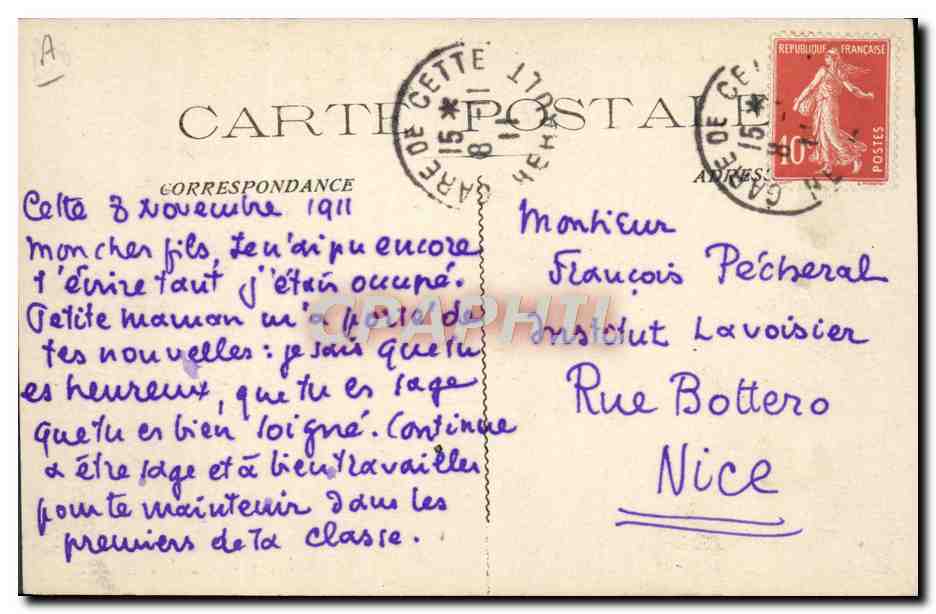 A
CARTE POSTALE
GARE DE CETTE
15 *
8 - 11
11
HERAULT
GARE DE CE
15 *
8 -
11
HE
REPUBLIQUE FRANÇAISE
10
POSTES
CORRESPONDANCE
ADRES
Cette 8 Novembre 1911
Mon cher fils, Je n'ai pu encore
t'écrire tant j'étais occupé.
Petite maman m'a parlé de
tes nouvelles : je sais que tu
es heureux, que tu es sage
que tu es bien soigné. Continue
a être sage et à bien travailler
pour te maintenir dans les
premiers de ta classe.
Monsieur
François Pécheral
Institut Lavoisier
Rue Bottero
Nice
CPAPHIL